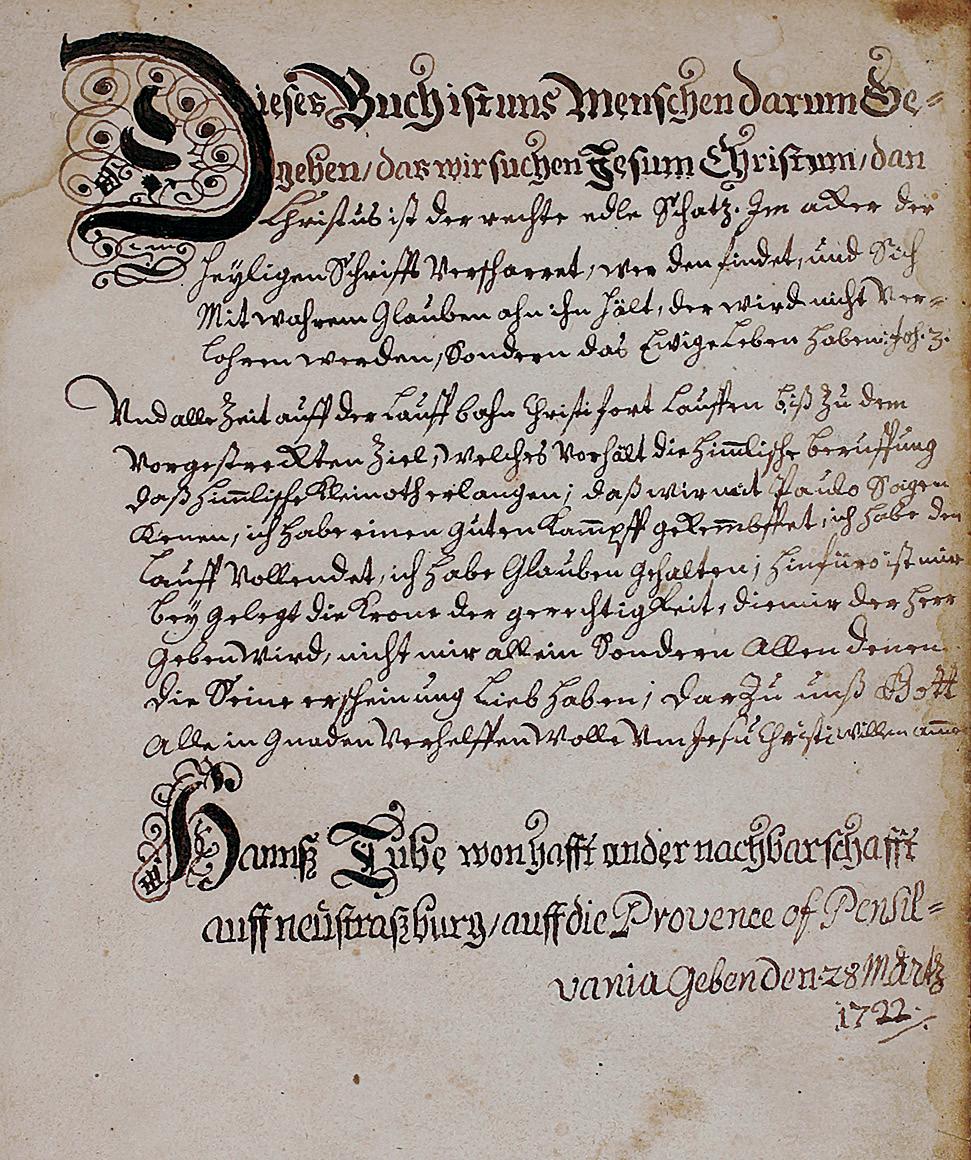 Dieses Buch ist uns Menschen darum Ge=
geben / das wir suchen Jesum Christum / dan
Christus ist der rechte edle Schatz. Im acker der
heyligen Schrifft Verscharret, wer den findet, und Sich
Mit wahrem Glauben ahn ihn hält, der wird nicht Ver=
lohren werden, Sondern das Ewige Leben haben: Joh. 3.
Und alle Zeit auff der Lauff bahn Christi fort Lauffen biß Zu dem
Vorgestreckten Ziel, welches Vorhält die himlische beruffung
daß himlische Kleinoth erlangen; daß wir mit Paulo Sagen
Kenen, ich habe einen guten Kampff gekembffet, ich habe den
Lauff Vollendet, ich habe Glauben gehalten; hinfüro ist mir
bey gelegt die Krone der gerechtigkeit, die mir der herr
geben Wird, nicht mir allein Sondern Allen denen
die Seine erscheinung Lieb haben; dar Zu unß Gott
Alle in Gnaden Verhelffen Wolle Um Jesu Christi willen amen
Hannß Tube wonhafft in der nachbarschafft
auff neüstraßburg / auff die Provence of Pensil=
vania Geben den 28 Märtz
1722.